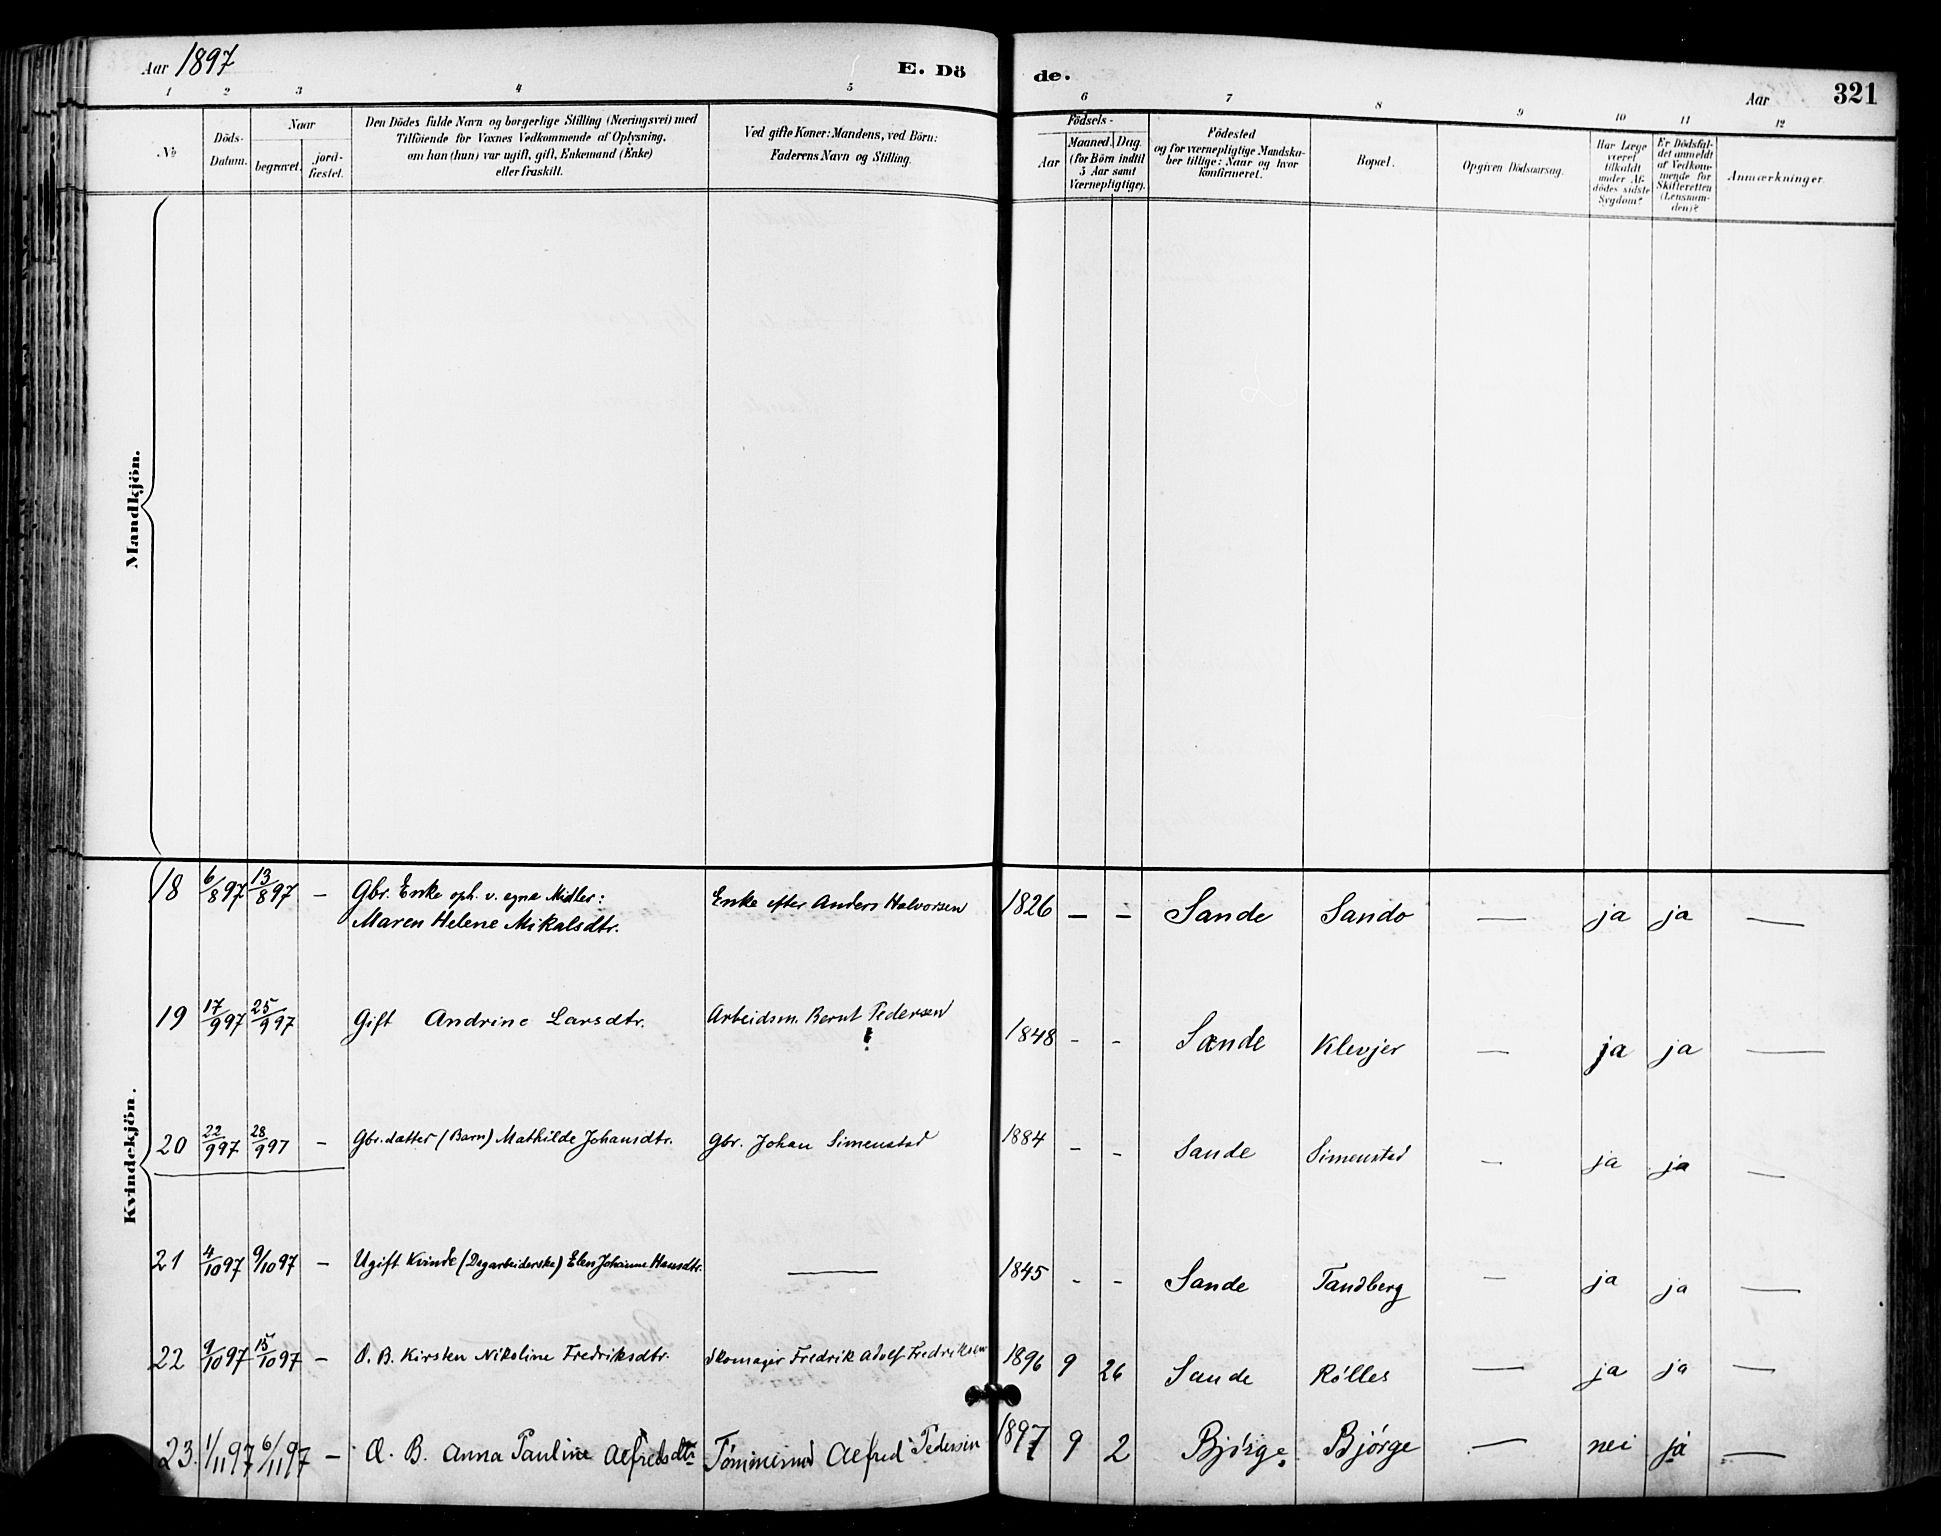 Aar 1897
E. Dö
de.
Aar
321
1 2 3 4 5 6 7 8 9 10 11 12
No
Döds-
Datum.
Naar
begravet.
jord-
fæstet.
Den Dödes fulde Navn og borgerlige Stilling (Næringsvei) med
Tilföiende for Voxnes Vedkommende af Oplysning,
om han (hun) var ugift, gift, Enkemand (Enke)
eller fraskilt.
Ved gifte Koner: Mandens, ved Börn:
Faderens Navn og Stilling.
Födsels-
Aar
Maaned. Dag.
(for Börn indtil
5 Aar samt
Værnepligtige).
Födested
og for værnepligtige Mandska-
ber tillige: Naar og hvor
konfirmeret.
Bopæl.
Opgiven Dödsaarsag.
Har Læge
været
tilkaldt
under Af-
dödes sidste
Sygdom?
Er Dödsfal-
det anmeldt
af Vedkom-
mende for
Skifteretten
(Lensman-
den)?
Anmærkninger.
Mandkjön.
Kvindekjön.
18 6/8 97 13/8 97 – Gbr. Enke oph. v. egne Midler: Enke efter Anders Halvorsen 1826 – – Sande Sando — ja ja —
Maren Helene Mikalsdtr.
19 17/9 97 25/9 97 Gift Andrine Larsdtr. Arbeidsm. Bernt Pedersen 1848 - - Sande Klevjer — ja ja —
20 22/9 97 28/9 97 – Gbr. datter (Barn) Mathilde Johansdtr. Gbr. Johan Simenstad 1884 - - Sande Simenstad — ja ja —
21 4/10 97 9/10 97 – Ugift Kvinde (Dagarbeiderske) Elen Johanne Hansdtr. — 1845 - - Sande Tandberg — ja ja —
22 9/10 97 15/10 97 – Æ. B. Kirsten Nikoline Fredriksdtr. Skomager Fredrik Adolf Fredriksen 1896 9 26 Sande Rølles — ja ja —
23. 1/11 97 6/11 97 – Æ. B. Anna Pauline Alfredsdtr. Tømmermd Alfred Pedersen 1897 9 2 Bjørge. Bjørge — nei ja —